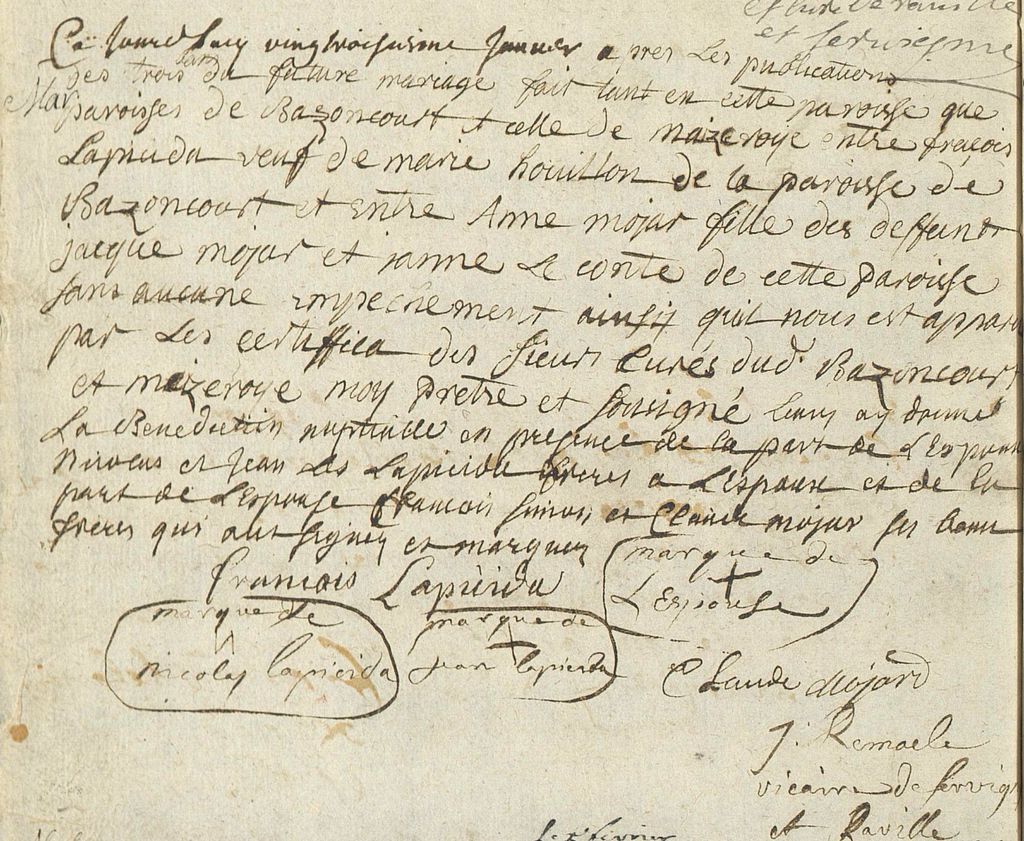 et Servigny
Ce Jourdhuy vingtroisieme Janvier apres les publications
des trois bans du future mariage fait tant en cette paroisse que
Mar
paroisses de Bazoncourt et celle de maizeroye entre fracois
Lapicida veuf de marie houillon de la paroisse de
Bazoncourt et entre Anne mojar fille des deffunt
jacque mojar et janne Le conte de cette paroisse
sans aucune impechement ainsij quil nous est apparu
par Les certiffica des sieurs Curés dud. Bazoncourt
et maizeroye moy pretre et sousigné leurs ay donné
La Benediction nuptialle en presence de la part de L'Espoux
Nicolas et Jean Les Lapicida freres a L'Espoux et de la
part de L'Espouse francois simon et Claude mojar ses beau
freres qui ont signez et marquez
francois Lapicida
marque de
L'Espouse
marque de
nicolas lapicida
marque de
jean lapicida
Claude Mojard
J. Remacle
vicaire de servigny
et Raville
fevrier